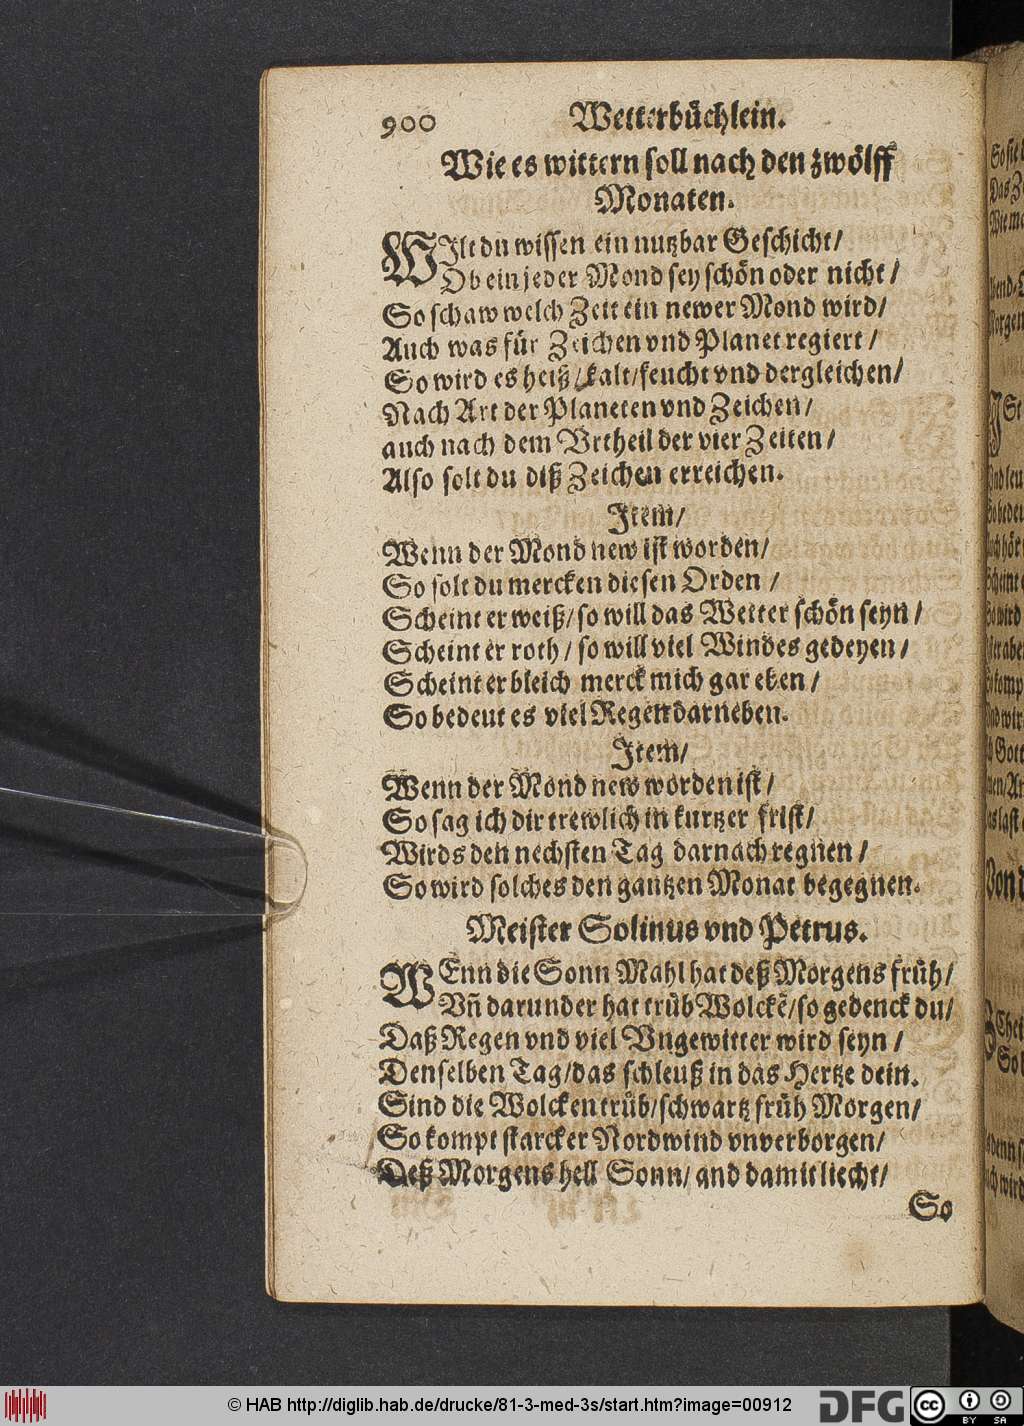 900 Wetterbüchlein.
Wie es wittern soll nach den zwölff
Monaten.
WIlt du wissen ein nutzbar Geschicht/
Ob ein jeder Mond sey schön oder nicht/
So schaw welch Zeit ein newer Mond wird/
Auch was für Zeichen vnd Planet regiert/
So wird es heiß/kalt/feucht vnd dergleichen/
Nach Art der Planeten vnd Zeichen/
auch nach dem Vrtheil der vier Zeiten/
Also solt du diß Zeichen erreichen.
Item/
Wenn der Mond new ist worden/
So solt du mercken diesen Orden/
Scheint er weiß/so will das Wetter schön seyn/
Scheint er roth/so will viel Windes gedeyen/
Scheint er bleich merck mich gar eben/
So bedeut es viel Regen darneben.
Item/
Wenn der Mond new worden ist/
So sag ich dir trewlich in kurtzer frist/
Wirds den nechsten Tag darnach regnen/
So wird solches den gantzen Monat begegnen.
Meister Solinus vnd Petrus.
WEnn die Sonn Mahl hat deß Morgens früh/
Vñ darunder hat trüb Wolckẽ/so gedenck du/
Daß Regen vnd viel Vngewitter wird seyn/
Denselben Tag/das schleuß in das Hertze dein.
Sind die Wolcken trüb/schwartz früh Morgen/
So kompt starcker Nordwind vnverborgen/
Deß Morgens hell Sonn/and damit liecht/
So
© HAB http://diglib.hab.de/drucke/81-3-med-3s/start.htm?image=00912
DFG
cc
BY SA